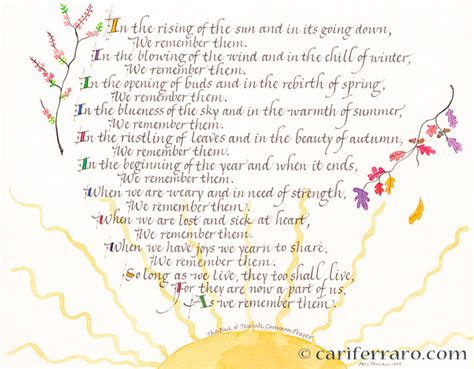 In the rising of the sun and in its going down,
We remember them.
In the blowing of the wind and in the chill of winter,
We remember them.
In the opening of buds and in the rebirth of spring,
We remember them.
In the blueness of the sky and in the warmth of summer,
We remember them.
In the rustling of leaves and in the beauty of autumn,
We remember them.
In the beginning of the year and when it ends,
We remember them.
When we are weary and in need of strength,
We remember them.
When we are lost and sick at heart,
We remember them.
When we have joys we yearn to share,
We remember them.
So long as we live, they too shall live,
For they are now a part of us,
As we remember them.
Jewish Common Prayer
© cariferraro.com